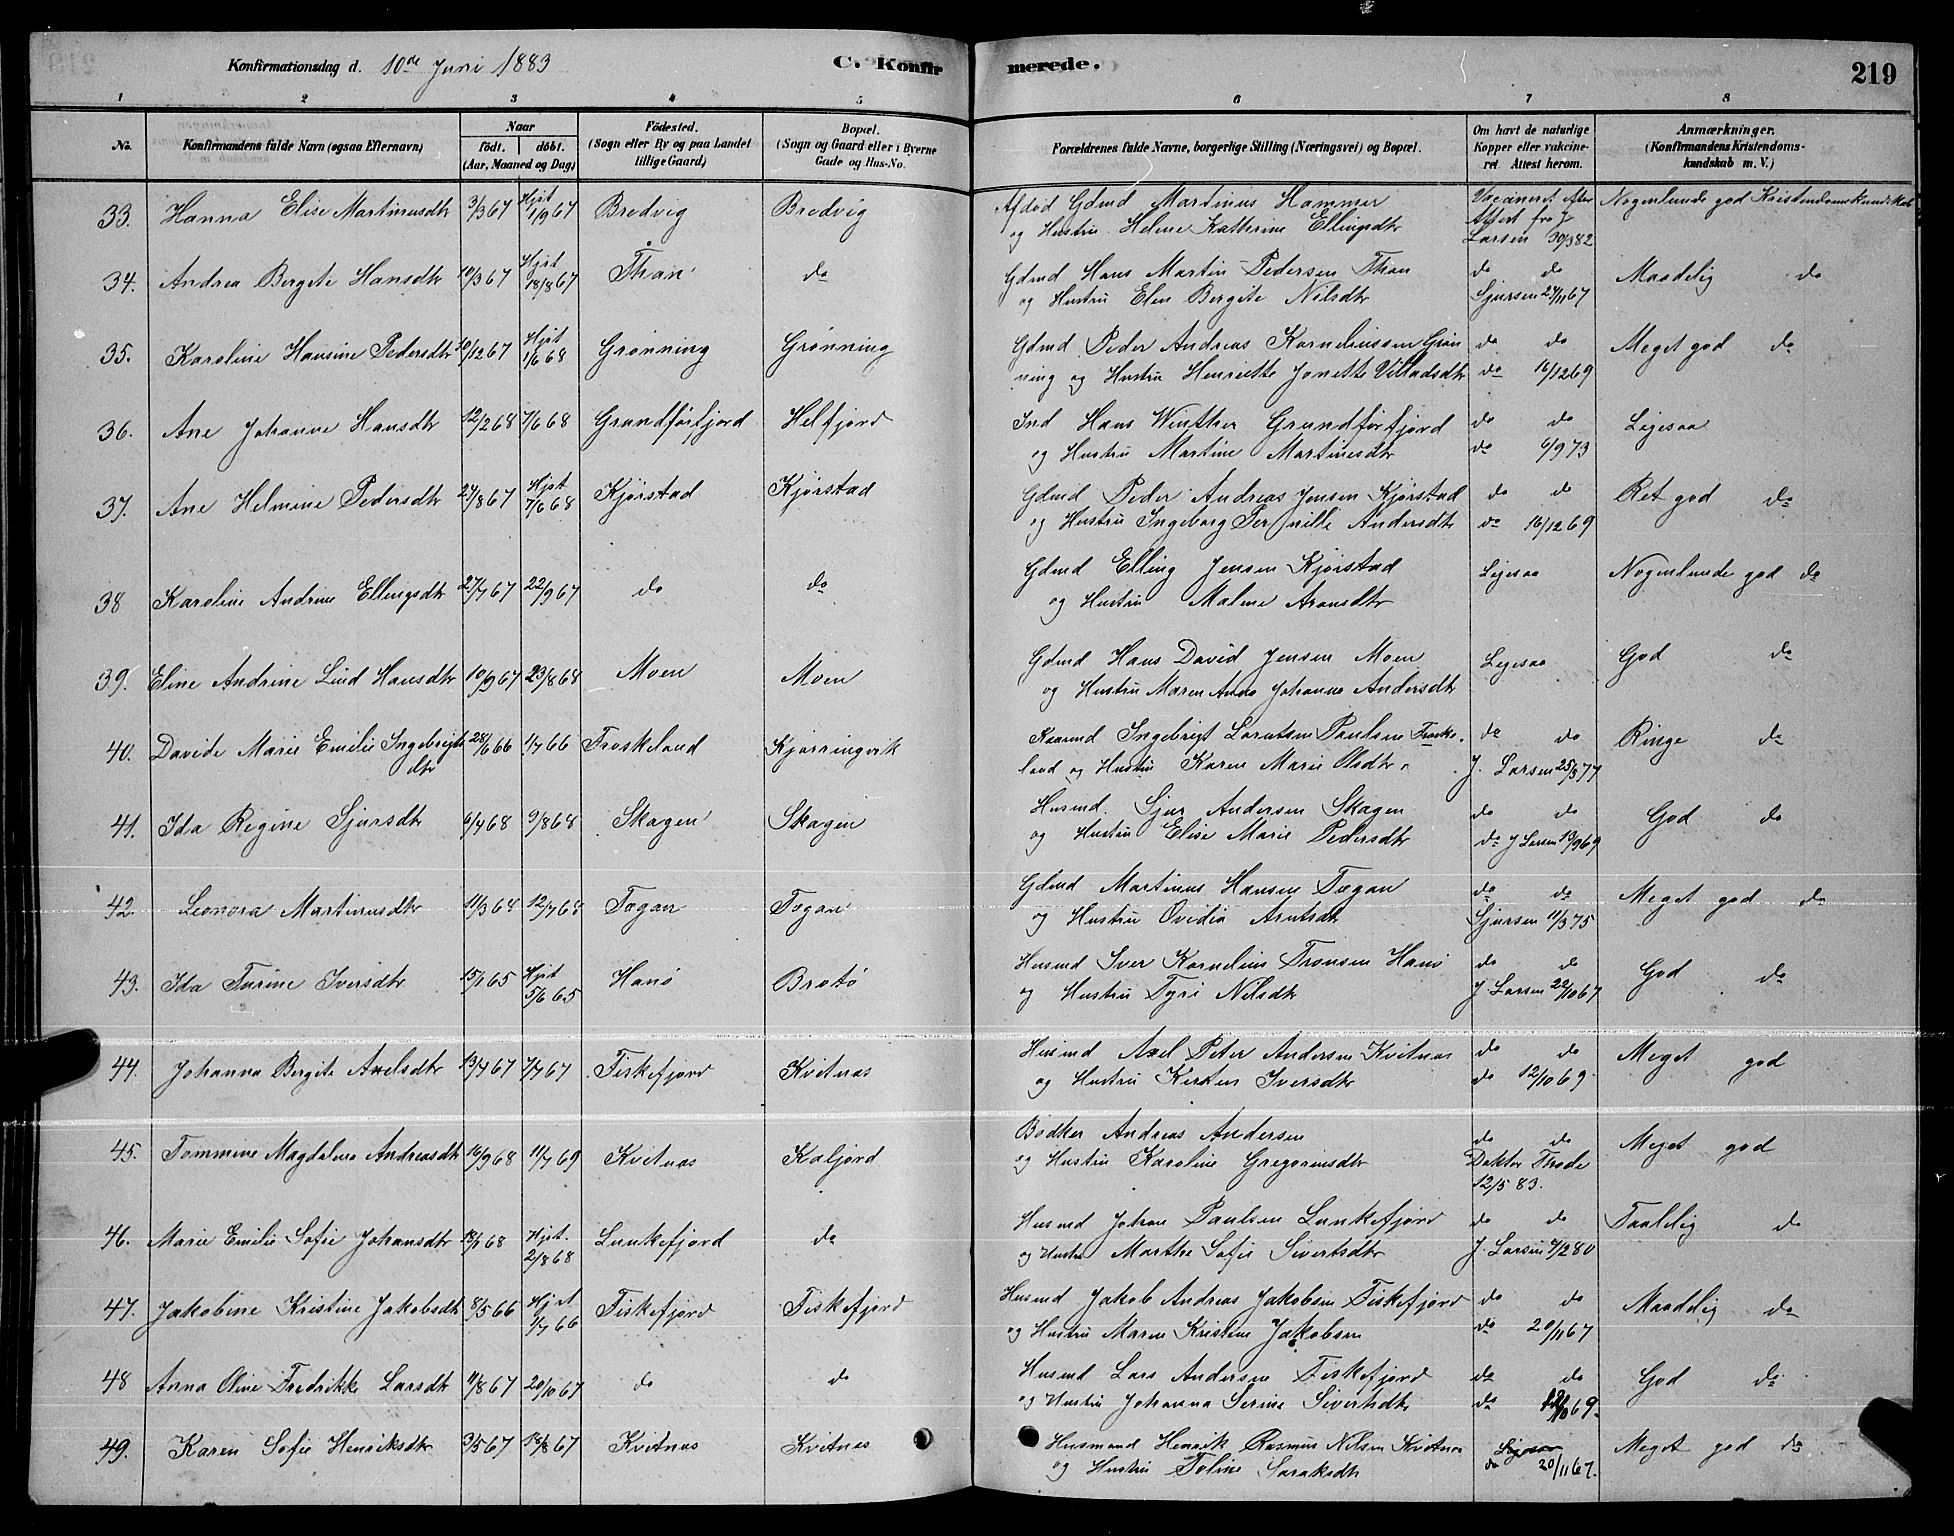 Konfirmationsdag d. 10de Juni 1883
C. Konfirmerede.
219
1 2 3 4 5 6 7 8
No.
Konfirmandens fulde Navn (ogsaa Efternavn)
Naar
født. døbt.
(Aar, Maaned og Dag)
Fødested.
(Sogn eller By og paa Landet
tillige Gaard)
Bopæl.
(Sogn og Gaard eller i Byerne
Gade og Hus-No.
Forældrenes fulde Navne, borgerlige Stilling (Næringsvei) og Bopæl.
Om havt de naturlige
Kopper eller vakcine-
ret. Attest herom.
Anmærkninger.
(Konfirmandens Kristendoms-
kundskab m. V.)
33. Hanna Elise Martinusdtr 3/3 67 Hjdt 1/9 67 Bredvig Bredvig Afdød Gdmd Martinus Hammer Vaccineret efter Nogenlunde god Kristendomskundskab
og Hustru Helene Kathrine Ellingsdtr Attest fra J Larsen 30/3 82
34. Andrea Bergite Hansdtr 10/3 67 Hjdt 18/8 67 Than do Gdmd Hans Martin Pedersen Than do do Maadelig do
og Hustru Elen Bergite Nilsdtr Sjursen 24/11 67
35. Karoline Hansine Pedersdtr 10/12 67 Hjdt 1/6 68 Grønning Grønning Gdmd Peder Andreas Korneliussen Grøn do do Meget god do
ning og Hustru Henriette Jonette Villadsdtr do 16/12 69
36. Ane Johanne Hansdtr 12/2 68 7/6 68 Grundførfjord Helfjord Ind Hans Winther Grundførfjord do do Ligesaa
og Hustru Martine Martinesdtr do 6/9 73
37. Ane Helmine Pedersdtr 24/8 67 Hjdt 7/6 68 Kjørstad Kjørstad Gdmd Peder Andreas Jensen Kjørstad do do Ret god do
og Hustru Ingeborg Pernille Andersdtr do 16/12 69
38 Karoline Andrine Ellingsdtr 27/7 67 22/9 67 do do Gdmd Elling Jensen Kjørstad Ligesaa Nogenlunde god do
og Hustru Malene Aronsdtr
39. Eline Andrine Lind Hansdtr 10/9 67 23/8 68 Moen Moen Gdmd Hans David Jensen Moen Ligesaa God do
og Hustru Maren Anna Johanna Andersdtr
40. Davide Marie Emilie Ingebrigts 28/6 66 1/7 66 Froskeland Kjørringvik Ingebrigt Lorntsen Paulsen Froske. do do Ringe do
dtr land og Hustru Karen Marie Olsdtr. J. Larsen 25/3 77
41. Ida Regine Sjursdtr 6/4 68 9/8 68 Skagen Skagen Husmd. Sjur Andersen Skagen do do God do
og Hustru Elise Marie Pedersdtr do J Larsen 13/9 69
42. Leonora Martinusdtr 11/3 68 12/7 68 Togan Togan Gdmd Martinus Hansen Togan do do Meget god do
og Hustru Ovidia Arntsdtr Sjursen 11/3 75
43. Ida Turine Iversdtr 15/1 65 Hjdt 5/6 65 Hanø Brotø Husmd Iver Kornelius Tronsen Hanø do do God do
og Hustru Tyri Nilsdtr J. Larsen 22/10 67
44. Johanna Bergite Axelsdtr 13/4 67 7/7 67 Fiskefjord Kvitnæs Husmd Axel Peter Andersen Kvitnæs do do Meget god
og Hustru Kirsten Iversdtr do 12/10 69.
45. Tommine Magdalena Andreasdtr 16/9 68 11/7 69 Kvitnæs Kaljord Bødker Andreas Andersen do do Meget god
og Hustru Karoline Gregoriusdtr Doktor Thode
12/5 83.
46. Marie Emilie Sofie Johansdtr 18/1 68 Hjdt. 2/8 68 Lunkefjord do Husmd Johan Paulsen Lunkefjord do do Taalelig do
og Hustru Marthe Sofie Sivertsdtr J. Larsen 4/2 80
47. Jakobine Kristine Jakobsdtr 8/5 66 Hjdt 1/7 66 Fiskefjord Fiskefjord Husmd Jakob Andreas Jakobsen Fiskefjord do do Maadelig do
og Hustru Maren Kristine Jakobsen do 20/11 67
48 Anna Oline Fredrikke Larsdtr 11/8 67 20/10 67 do do Husmd Lars Andersen Fiskefjord do do God do
og Hustru Johanna Serine Sivertsdtr do 12/10 69.
49. Karen Sofie Henriksdtr 3/5 67 18/8 67 Kvitnæs Kvitnæs Husmand Henrik Rasmus Nilsen Kvitnæs Ligesaa Meget god do
og Hustru Toline Zaraksdtr do 20/11 67.